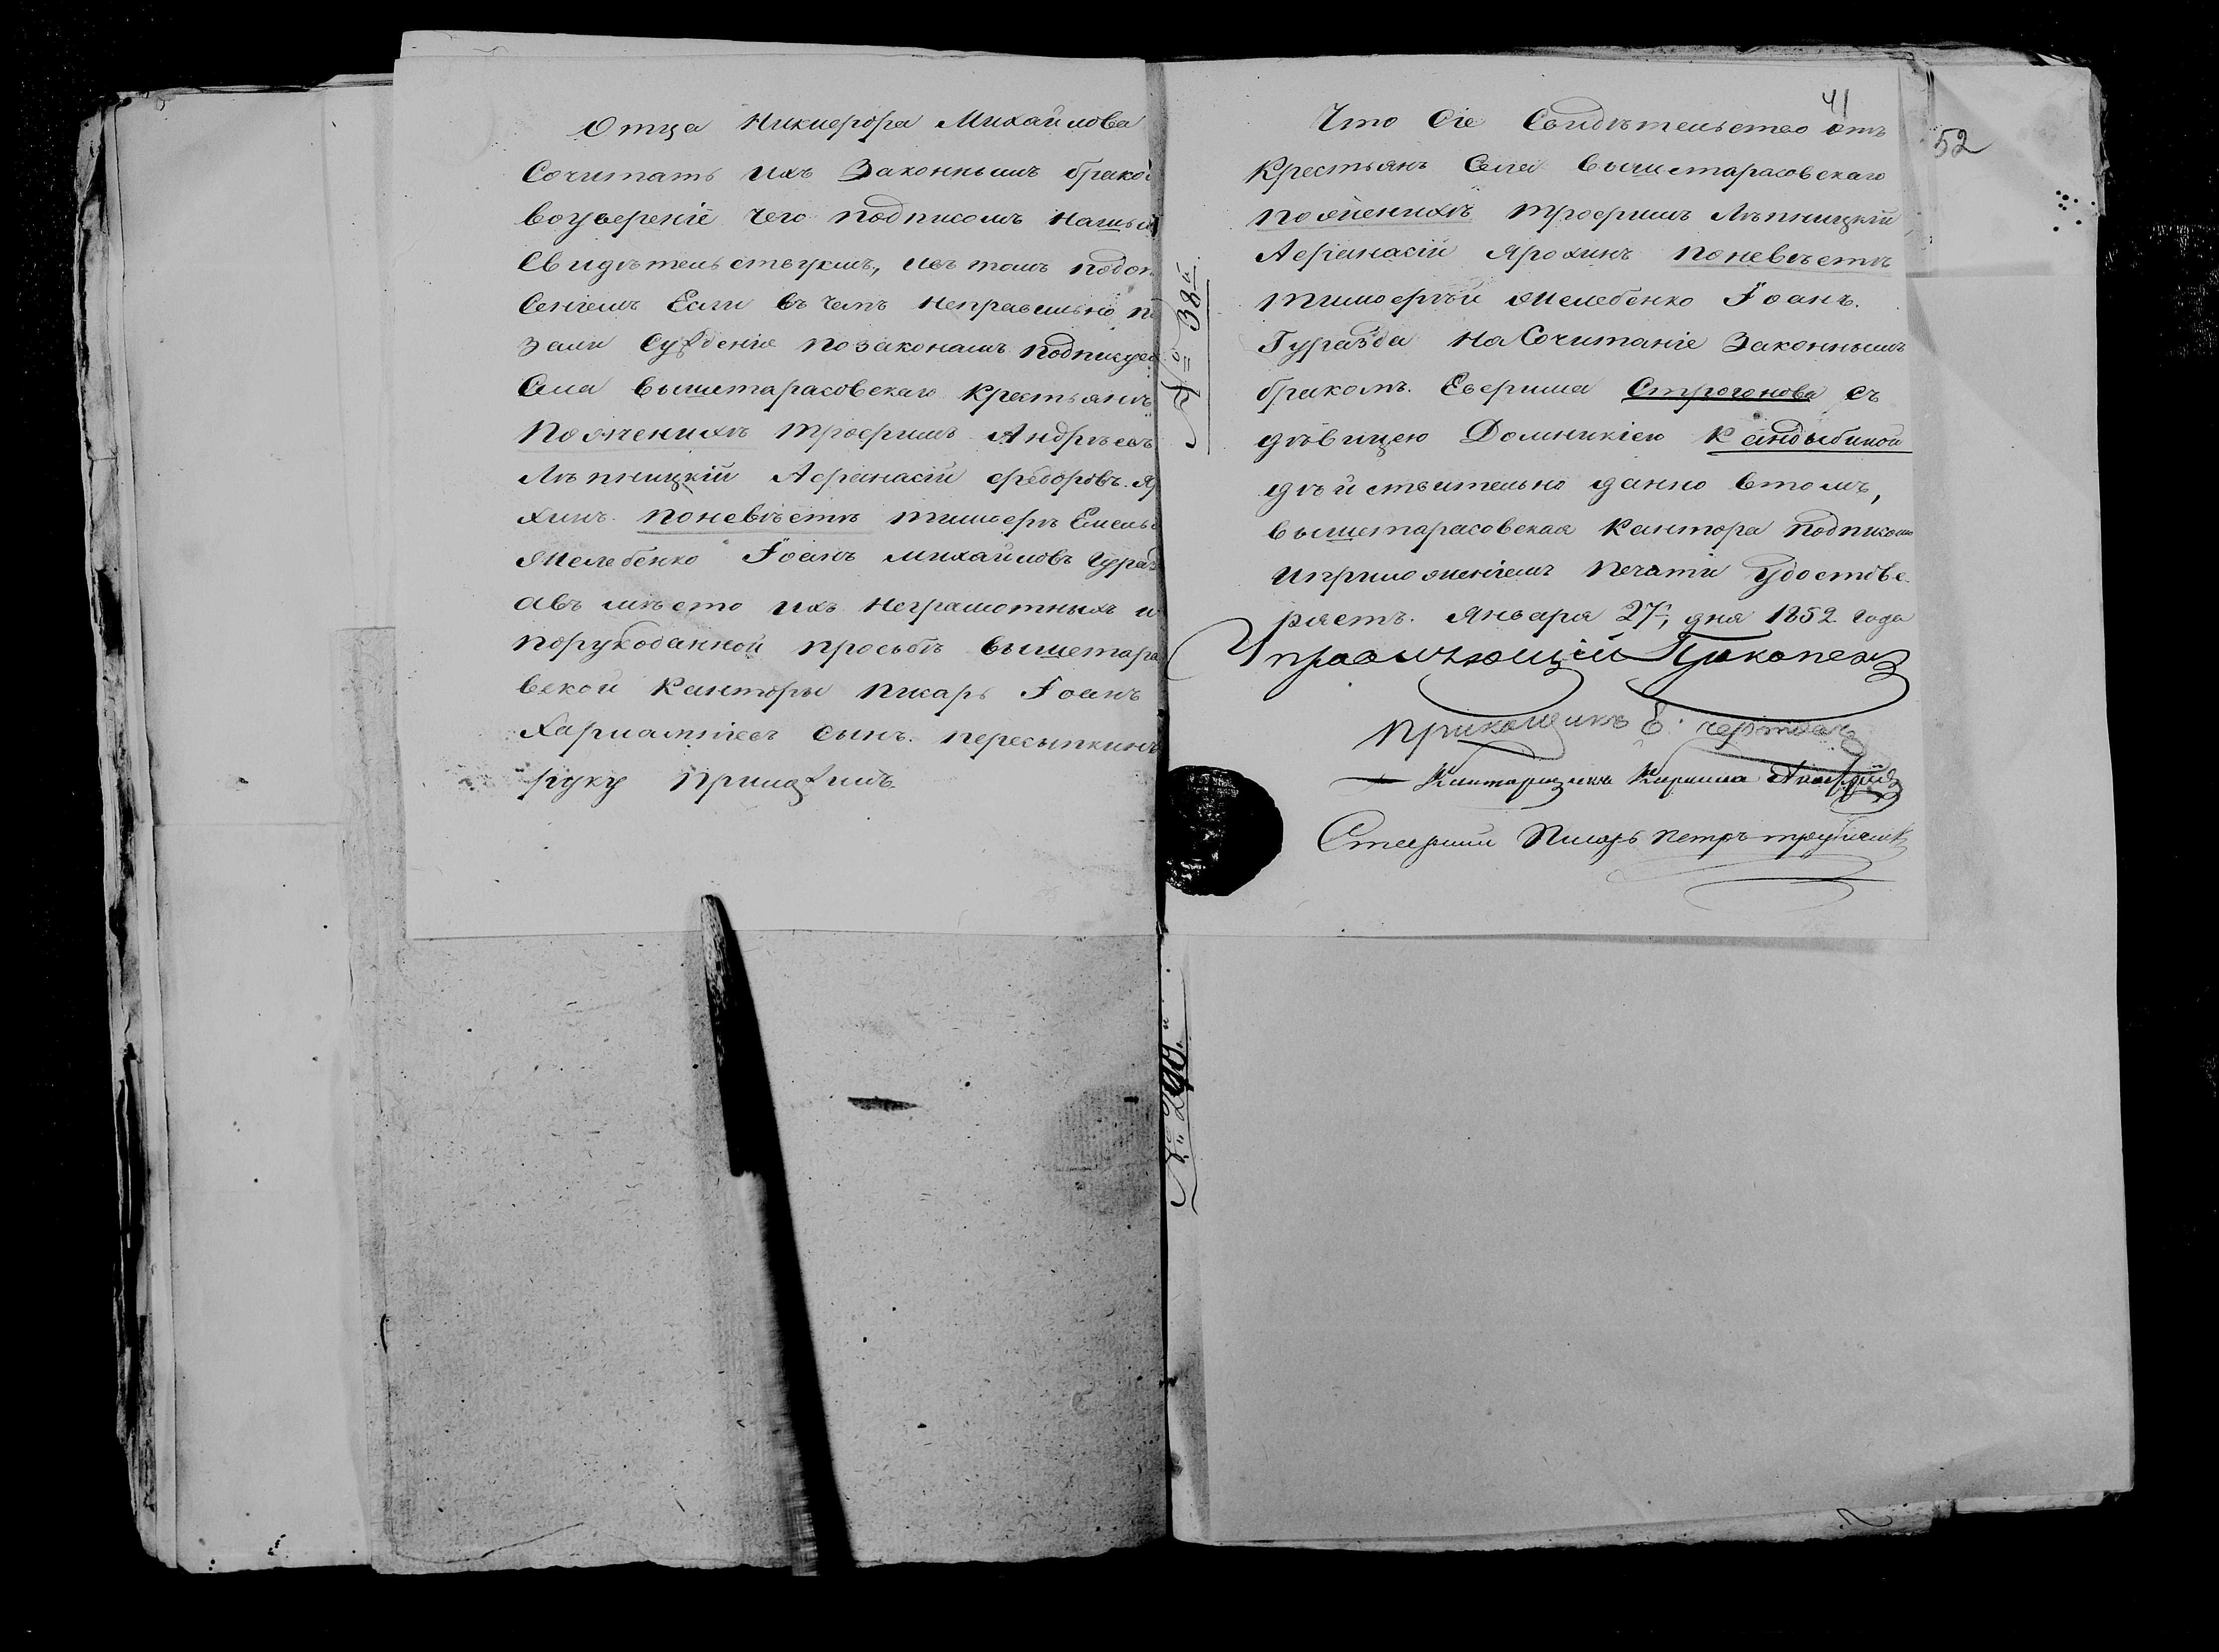 Отца Никиефора Михайлова
Сочитать ихъ Законнымъ брако
воуверение чего подписомъ нашы
Свидѣтельствуемъ, ивътомъ
Если въ чемъ неправильно
зали Суждение позаконамъ
Села Вышетарасовскаго Крестьянъ
Поженихѣ Трофимъ Андрѣевъ
Лѣпницкій Афанасій Федоровъ Я
хинъ. Поневѣстѣ Тимофѣ Емель
Желебенко Іоанъ Михайловъ Гура
авъ мѣсто ихъ неграмотныхъ и
порукоданной просьбѣ Вышетара
вской Канторы писарь Іоанъ
Харлампіевъ Сынъ. Пересыпкинъ
руку приложилъ
41
52
Что Сіе Свидѣтельство отъ
Крестьянъ Села Вышетарасовскаго
поженихѣ Трофимъ Лѣпницкій
Афанасій Ярохинъ поневѣстѣ
Тимофѣй Желебенко Іоанъ.
Гуразда На Сочитаніе Законнымъ
бракомъ. Евфима Строгонова съ
дѣвицею Домникіею Кандыбиной
дѣйствительно данно втомъ,
Вышетарасовская Кантора подписомъ
иприложеніемъ печати Удостове
ряетъ. Января 27, дня 1852 Года
Управляющій
Прикащикъ Е.
Канторщикъ Кирила
Старшій Писарь Петръ
№ 38й
№ 290.